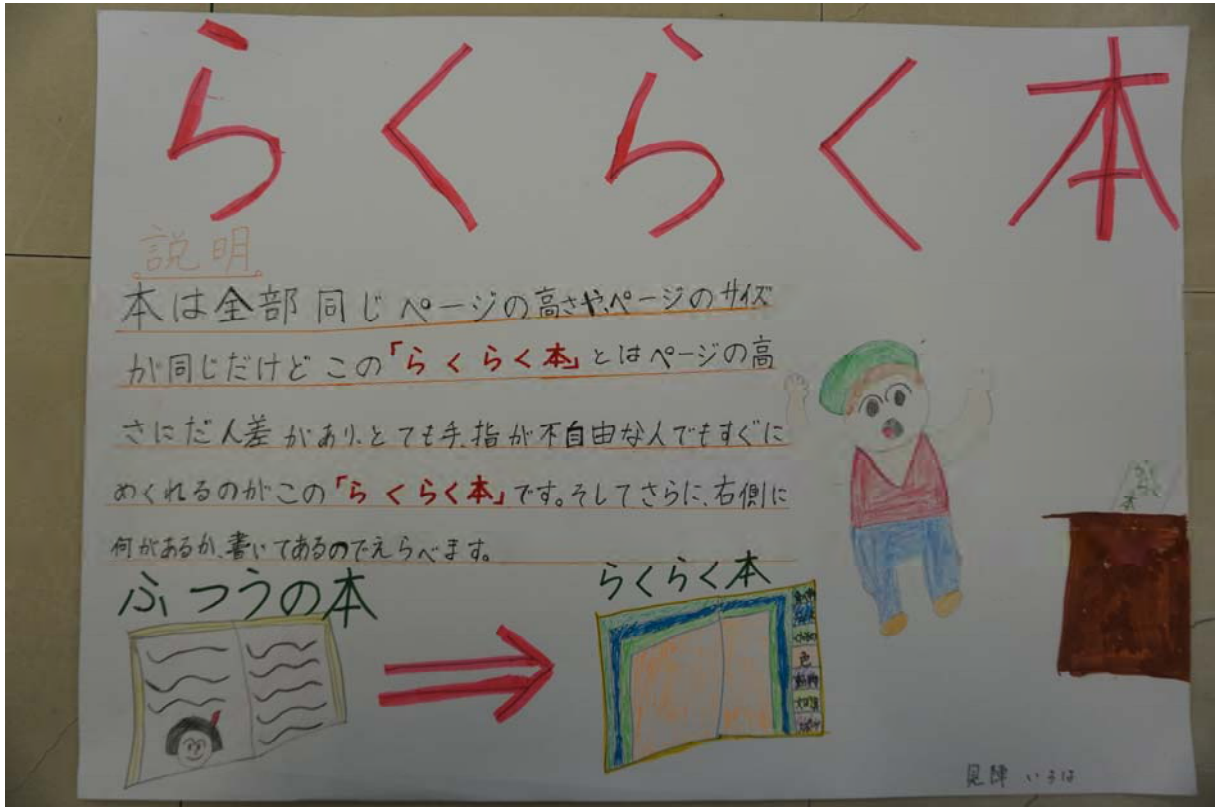 らくらく本
説明
本は全部同じページの高さや、ページのサイズ
が同じだけどこの「らくらく本」とはページの高
さにだん差があり、とても手、指が不自由な人でもすぐに
めくれるのがこの「らくらく本」です。そしてさらに、右側に
何があるか、書いてあるのでえらべます。
ふつうの本
らくらく本
色
動物
らくらく本
いろは